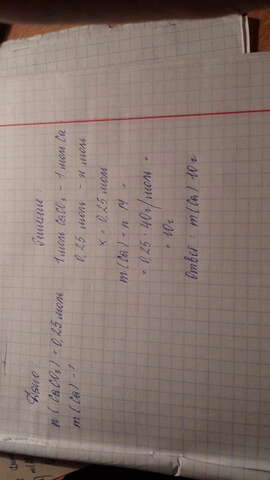 Дано
n (CaCO₃) = 0,25 моль
m (Ca) - ?
Решение:
1 моль CaCO₃ - 1 моль Ca
0,25 моль - х моль
x = 0,25 моль
m (Ca) = n · M =
= 0,25 · 40 г/моль =
= 10 г
Ответ: m (Ca) 10 г